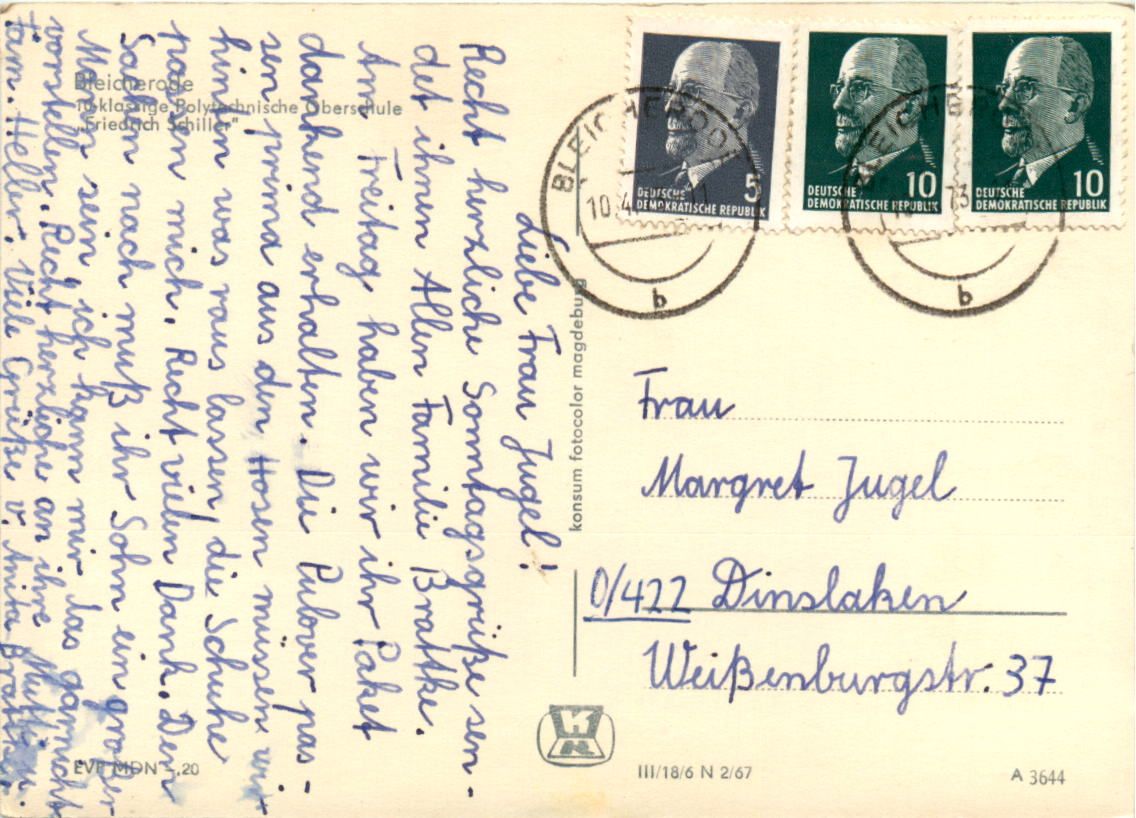 Bleicherode
10 klassige Polytechnische Oberschule
„Friedrich Schiller"
Liebe Frau Jugel!
Recht herzliche Sonntagsgrüße sen-
det ihnen Allen Familie Brattke.
Am Freitag haben wir ihr Paket
dankend erhalten. Die Pulover pas-
sen prima aus den Hosen müssen wir
hinten was raus lassen, die Schuhe
passen mich. Recht vielen Dank. Den
Sachen nach muß ihr Sohn ein großer
Mann sein, ich kann mir das garnicht
vorstellen. Recht herzliche an ihre Mutti u.
Tam. Heller. Viele Grüße v. Anita Brattke.
EVP MDN -,20
konsum fotocolor magdeburg
DEUTSCHE
DEMOKRATISCHE REPUBLIK
5
DEUTSCHE
DEMOKRATISCHE REPUBLIK
10
DEUTSCHE
DEMOKRATISCHE REPUBLIK
10
BLEICHERODE
10.4.
b
BLEICHER
73
b
Frau
Margret Jugel
0/422 Dinslaken
Weißenburgstr. 37
III/18/6 N 2/67
A 3644